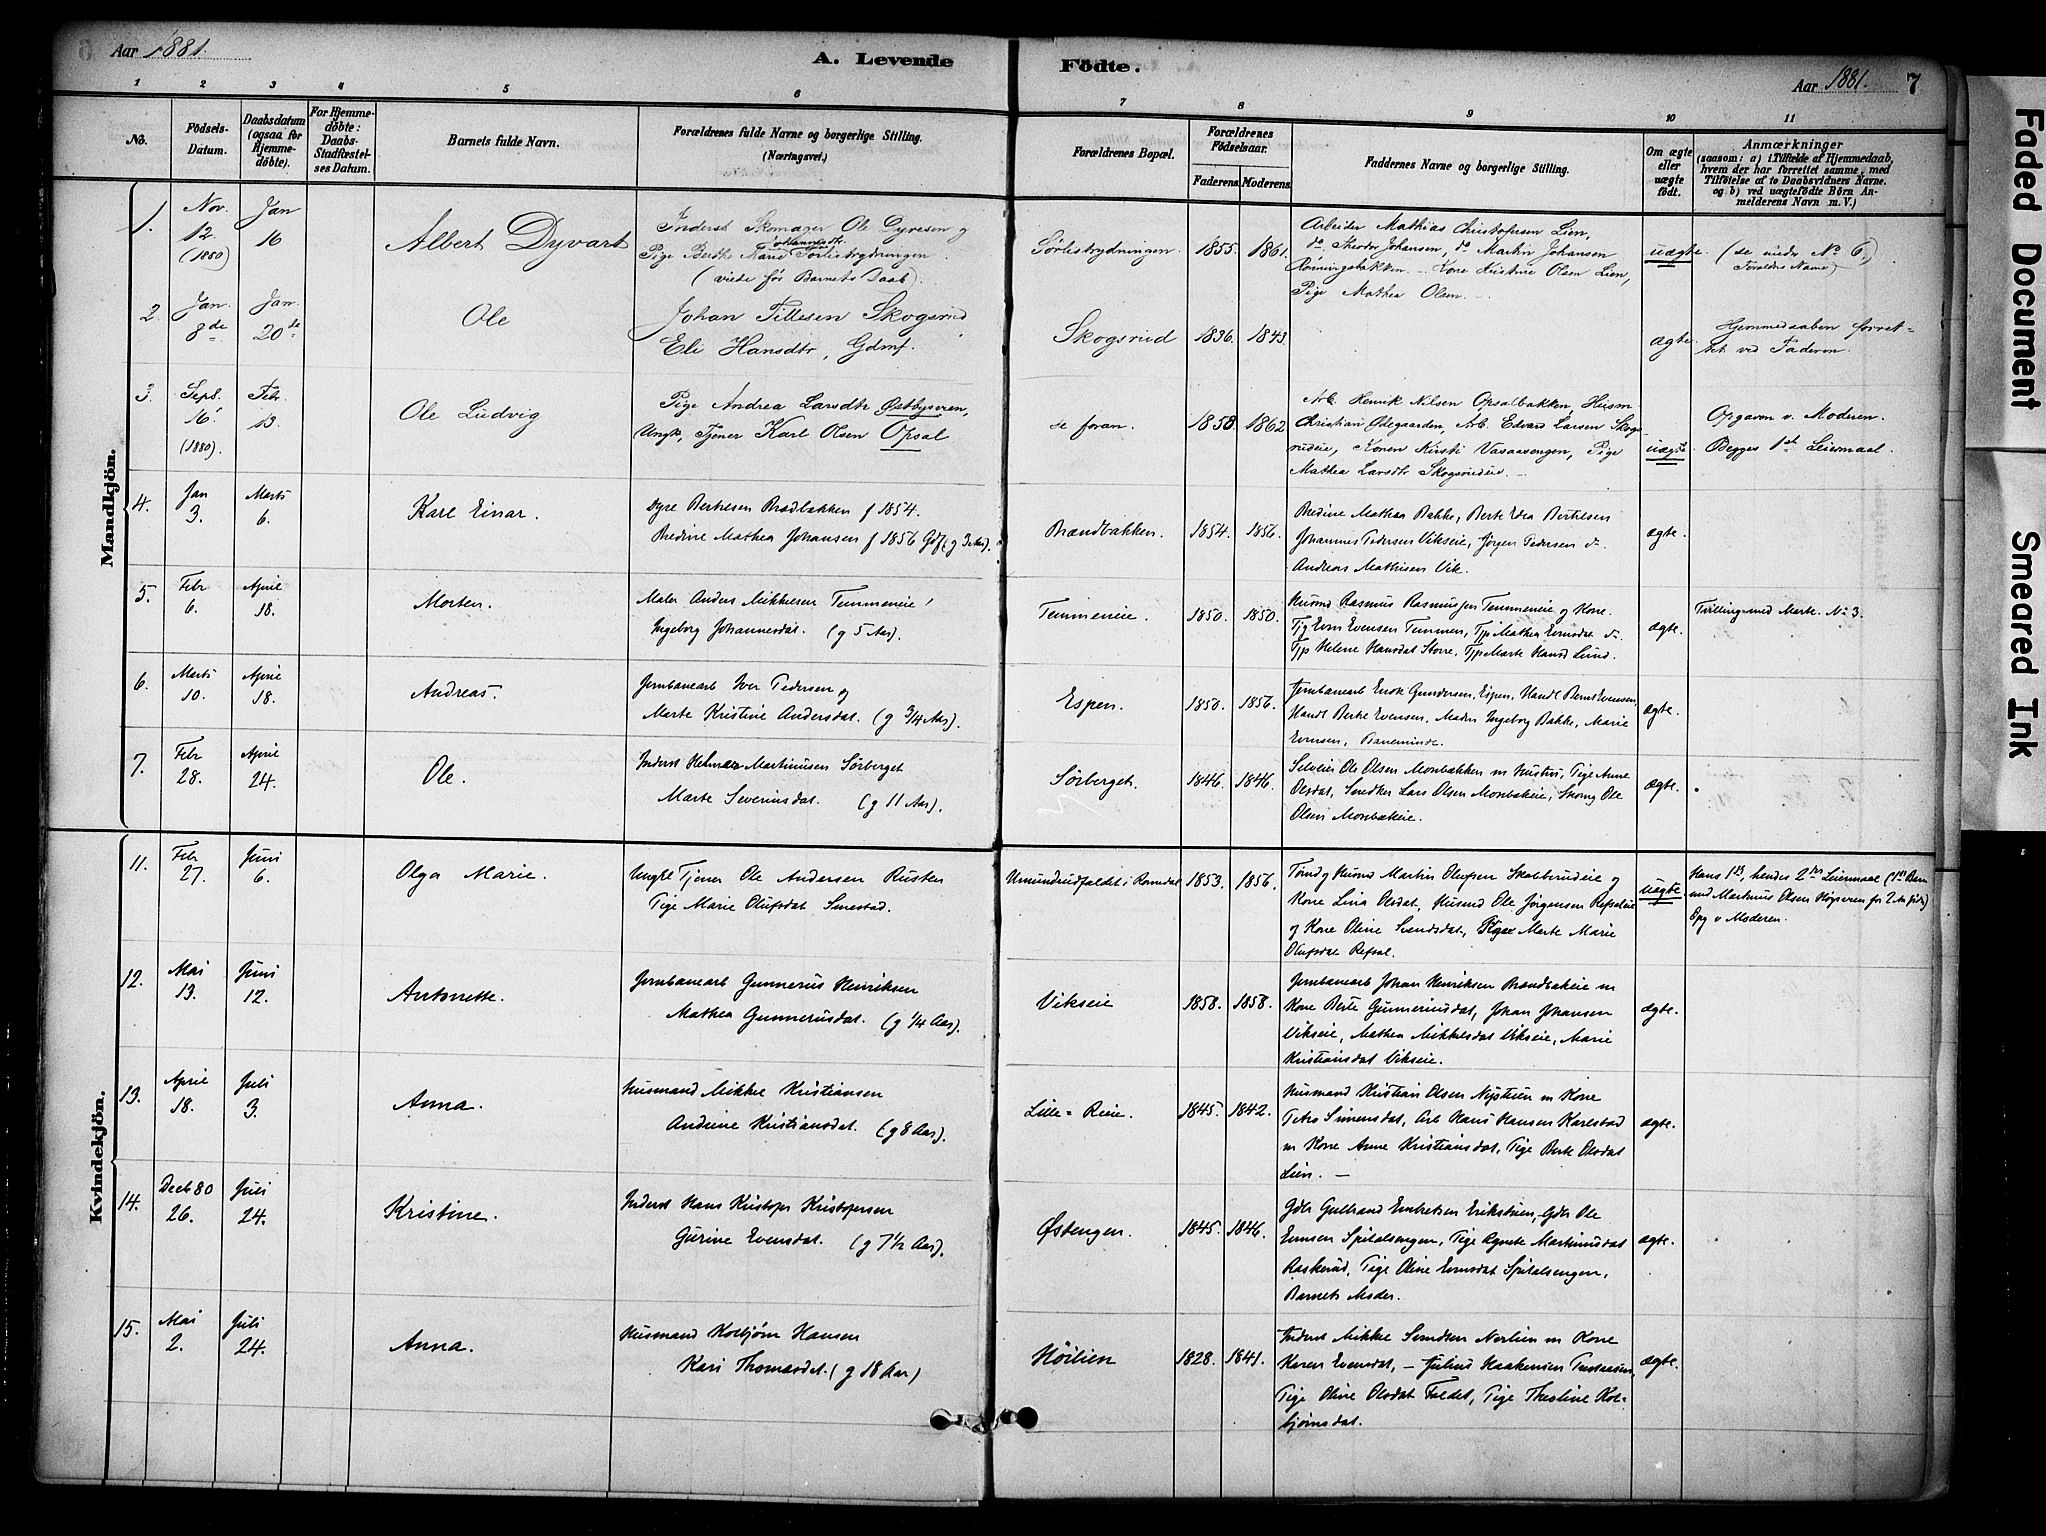 6 Aar 1881.
A. Levende Födte.
Aar 1881. 7
1 2 3 4 5 6 7 8 9 10 11
No.
Födsels-Datum.
Daabsdatum (ogsaa for Hjemme-döbte).
For Hjemme-döbte: Daabs-Stadfæstel-ses Datum.
Barnets fulde Navn.
Forældrenes fulde Navne og borgerlige Stilling.
(Næringsvei.)
Forældrenes Bopæl.
Forældrenes Födselsaar.
Faderens. Moderens.
Faddernes Navne og borgerlige Stilling.
Om ægte eller uægte födt.
Anmærkninger
(saasom: a) i Tilfælde af Hjemmedaab,
hvem der har forrettet samme, med
Tilföielse af to Daabsvidners Navne.
og b) ved uægtefödte Börn An-
melderens Navn m. V.)
Mandkjön.
1. Nov. 12. (1880) Jan 16
Albert Dyvart
Inderst Skomager Ole Dyresen og
Pige Berthe Marie Johannesdtr. Sørlistrydningen.
(viede før Barnets Daab).
Sørlistrydningen. 1855. 1861.
Arbeider Mathias Christophersen Lien,
do. Theodor Johansen, do. Martin Johansen
Rönningsbakken – Kone Kristine Olsen Lien,
Pige Mathea Olsen. –
uægte. (se under No 6.
Forældres Navne)
2. Jan. 8de Jan. 20de
Ole
Johan Tillesen Skogsrud
Eli Hansdtr, Gdmf.
Skogsrud 1836. 1843.
ægte.
Hjemmedaaben forret-
tet ved Faderen.
3. Sept. 16. (1880). Febr. 13.
Ole Ludvig
Pige Andrea Larsdtr Østbysveen,
Ungk, Tjener Karl Olsen Opsal
se foran. 1858. 1862
Arb. Henrik Nilsen Opsalbakken, Husm
Christian Ødegaarden, Arb. Edvard Larsen Skogs-
rudeie, Konen Kirsti Vasaavengen, Pige
Mathea Larsdtr Skogsrudeie. –
uægte.
Opgaven v. Moderen.
Begges 1ste Leiermaal.
4. Jan 3. Marts 6.
Karl Einar.
Dyre Bertelsen Brædbakken f 1854.
Bredine Mathea Johansen f 1856 Gdf (g 3 Aar).
Brændbakken. 1854. 1856.
Bredine Mathea Bakke, Berte Bertelsen
Johannes Pedersen Vikseie, Jørgen Pedersen do.
Andreas Mathisen Vik.
ægte.
5. Febr 6. April 18.
Morten.
Maler Anders Mikkelsen Temmeneie
Ingeborg Johannesdat. (g 5 Aar).
Temmeneie. 1850. 1850.
Husmd Rasmus Rasmusen Temmeneie og Kone.
Tjg Even Evensen Temmen, Tjp Mathea Evensdat do.
Tjp Helene Hansdat Storre, Tjp Marte Hansd Lund.
ægte.
Tvilling med Marte. No 3.
6. Marts 10. April 18.
Andreas.
Jernbanearb Iver Pedersen og
Marte Kristine Andersdat. (g 3/4 Aar).
Espen. 1850. 1856.
Jernbanearb Enok Gundersen, Espen, Handl Bernt Evensen,
Handl Berte Evensen, Maden Ingeborg Bakke, Marie
Evensen, Baneminde.
ægte.
7. Febr 28. April 24.
Ole.
Inderst Helmer Martinusen Sørberget
Marte Severinsdat. (g 11 Aar).
Sørberget. 1846. 1846.
Selveier Ole Olsen Monbakken m Hustru, Pige Anne
Olsdat, Snedker Lars Olsen Monbakeie, Skomg Ole
Olsen Monbakeie.
ægte.
Kvindekjön.
11. Febr 27. Juni 6.
Olga Marie.
Ungkl Tjener Ole Andersen Rusten
Pige Marie Olufsdat Smestad.
Umundrudfaldet i Romdal 1853. 1856.
Tømd og Husmd Martin Olufsen Skabberudeie og
Kone Lina Olsdat, Husmd Ole Jørgensen Refsaleie
og Kone Oline Svendsdat, Pige Marte Marie
Olufsdat Refsal.
uægte.
Hans 1ste, hendes 2det Leiermaal (1ste Barn
med Martinus Olsen Röysveen for 2 Aar siden)
Opg v Moderen.
12. Mai 13. Juni 12.
Antonette.
Jernbanearb Gunnerus Henriksen
Mathea Gunneriusdat. (g 1/4 Aar).
Vikseie 1858. 1858.
Jernbanearb Johan Henriksen Brændbakeie m
Kone Berte Gunneriusdat, Johan Johansen
Vikseie, Mathea Mikkelsdat Vikseie, Marie
Kristiansdat Vikseie.
ægte.
13. April 18. Juli 3.
Anna.
Husmand Mikkel Kristiansen
Andrine Kristiansdat. (g 8 Aar).
Lille-Reie. 1845. 1842.
Husmand Kristian Olsen Nystuen m Kone
Petra Simensdat, Arb Hans Hansen Karlstad
m Kone Anne Kristiansdat, Pige Berte Olsdat
Lien. –
ægte.
14. Decb 80 26. Juli 24.
Kristine.
Inderst Hans Kristofer Kristofersen
Gurine Evensdat. (g 7 1/2 Aar).
Østengen. 1845. 1846.
Gdbr Gulbrand Embretsen Erikstuen, Gdbr Ole
Evensen Spitalsengen, Pige Agnete Martinusdat
Raskerud, Pige Oline Evensdat Spitalsengen,
Barnets Moder.
ægte.
15. Mai 2. Juli 24.
Anna.
Husmand Kolbjørn Hansen
Kari Thomasdat. (g 18 Aar)
Høilien 1828. 1841.
Inderst Mikkel Svendsen Norlien m Kone
Karen Evensdat, – Julius Haakensen
Pige Oline Olsdat Faldet, Pige Thestine Kol-
bjørnsdat.
ægte.
Faded Document
Smeared Ink